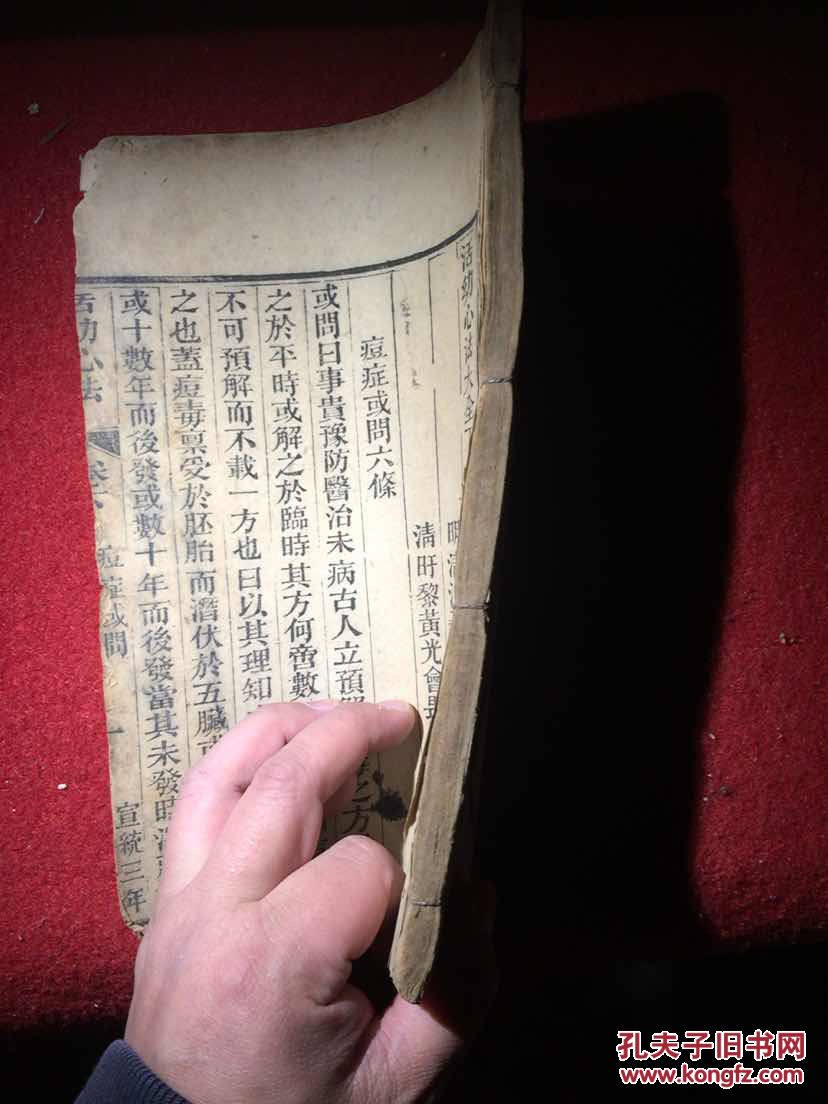 活幼心法大全
清旴黎黃光會
痘症或問六條
或問曰事貴豫防醫治未病古人立預解
之方
之於平時或解之於臨時其方何啻數
不可預解而不載一方也曰以其理知
之也蓋痘毒禀受於胚胎而潛伏於五臟或
或十數年而後發或數十年而後發當其未發時
活幼心法
卷六
痘症或問
一
宣統三年
孔夫子旧书网
www.kongfz.com